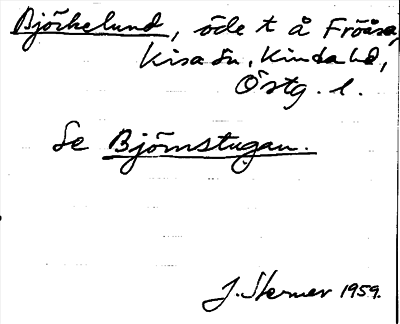 Björkelund, öde t å Fröåsa,
Kisa sn, Kinda hd,
Östg. l.
Se Björnstugan.
J. Sterner 1959.